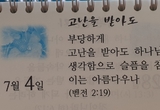 고난을 받아도
부당하게
고난을 받아도 하나님
생각함으로 슬픔을 참
이는 아름다우나
(벧전 2:19)
7월 4일